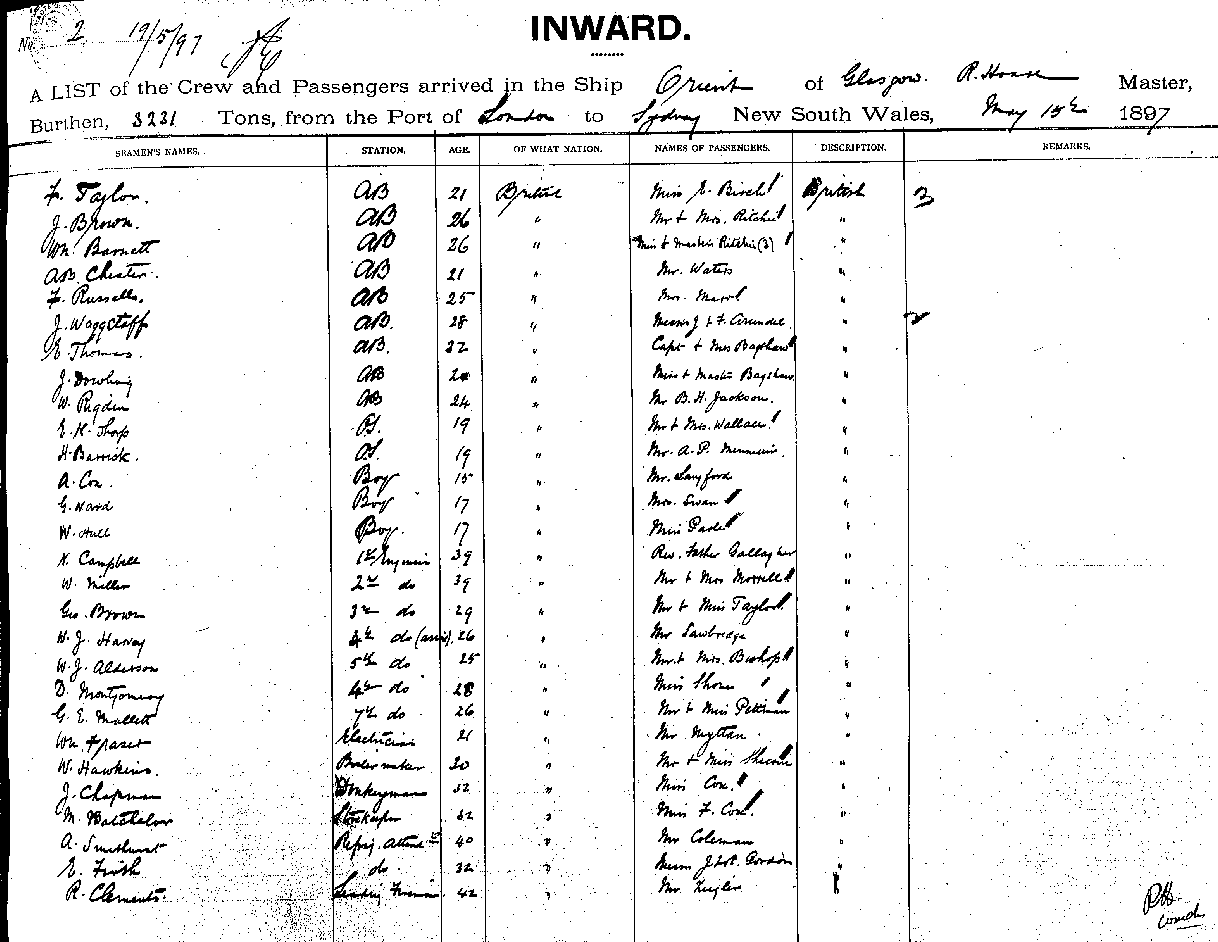 No. 2 19/5/97
INWARD.
A LIST of the Crew and Passengers arrived in the Ship Orient of Glasgow. Master,
Burthen, 3231 Tons, from the Port of London to Sydney New South Wales, May 15th 1897
SEAMEN'S NAMES. STATION. AGE. OF WHAT NATION. NAMES OF PASSENGERS. DESCRIPTION. REMARKS.
F. Taylor. AB 21 British Miss E. British 3
J. Brown. AB 26 " Mr & Mrs. Ritchie "
Wm. Barnett AB 26 " Miss & Masters Ritchie (3) "
AB. Chester. AB 21 " Mr. Waters "
F. Russell. AB 25 " Mrs. "
J. Waggstaff AB. 28 " Messrs J & F. Arundel. " 2
E Thomas. AB. 32 " Capt & Mrs Bagshaw "
J. Dowling AB " Miss & Master Bagshaw "
W. Rigden AB 24 " Mr B. H. Jackson. "
E. K. Sharp O.S. 19 " Mr & Mrs. Wallace "
H. Barrick. O.S. 19 " Mr. A. P. "
A. Cox. Boy 15 " Mr. Langford "
G. Ward Boy 17 " Mrs. Swan "
W. Hull Boy. 17 " Miss "
K. Campbell 1st Engineer 39 " Rev. Father Gallagher "
W. Miller 2nd do 39 " Mr & Mrs Morrell "
Geo. Brown 3rd do 29 " Mr & Miss Taylor "
W. J. Harvey 4th do 26 " Mr Sawbridge "
W. J. Alderson 5th do 25 " Mr. & Mrs. Bishop "
D. Montgomery do 28 " Miss "
G. E. Mallett 7th do 26 " Mr & Miss Pettman "
Wm. Fraser Electrician 21 " Mr "
W. Hawkins. Boilermaker 30 " Mr & Miss "
J. Chapman Donkeyman 32 " Miss Cox. "
M. Batchelor Storekeeper 32 " Miss F. Cox "
A. Smithurst Refrig. Attendt 40 " Mr Coleman "
E. Frith do. 32 " Gordon "
R. Clements. Leading Fireman 42 " Mr. "